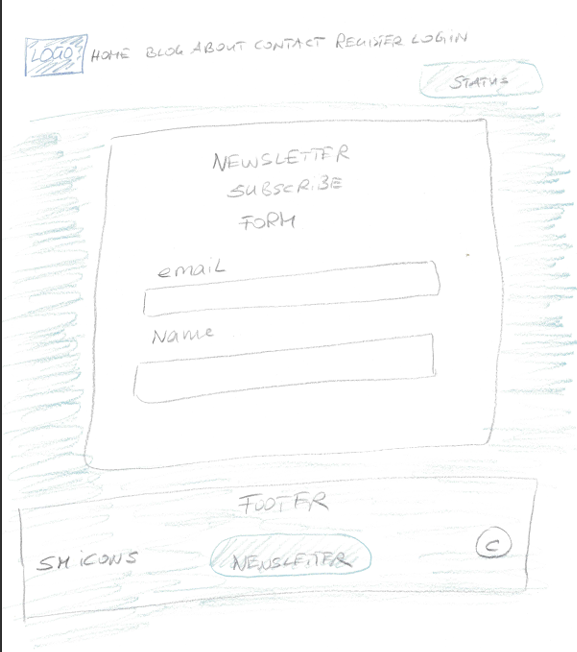 LOGO HOME BLOG ABOUT CONTACT REGISTER LOGIN
STATUS
NEWSLETTER
SUBSCRIBE
FORM
email
Name
FOOTER
SM iCONS NEWSLETTER C